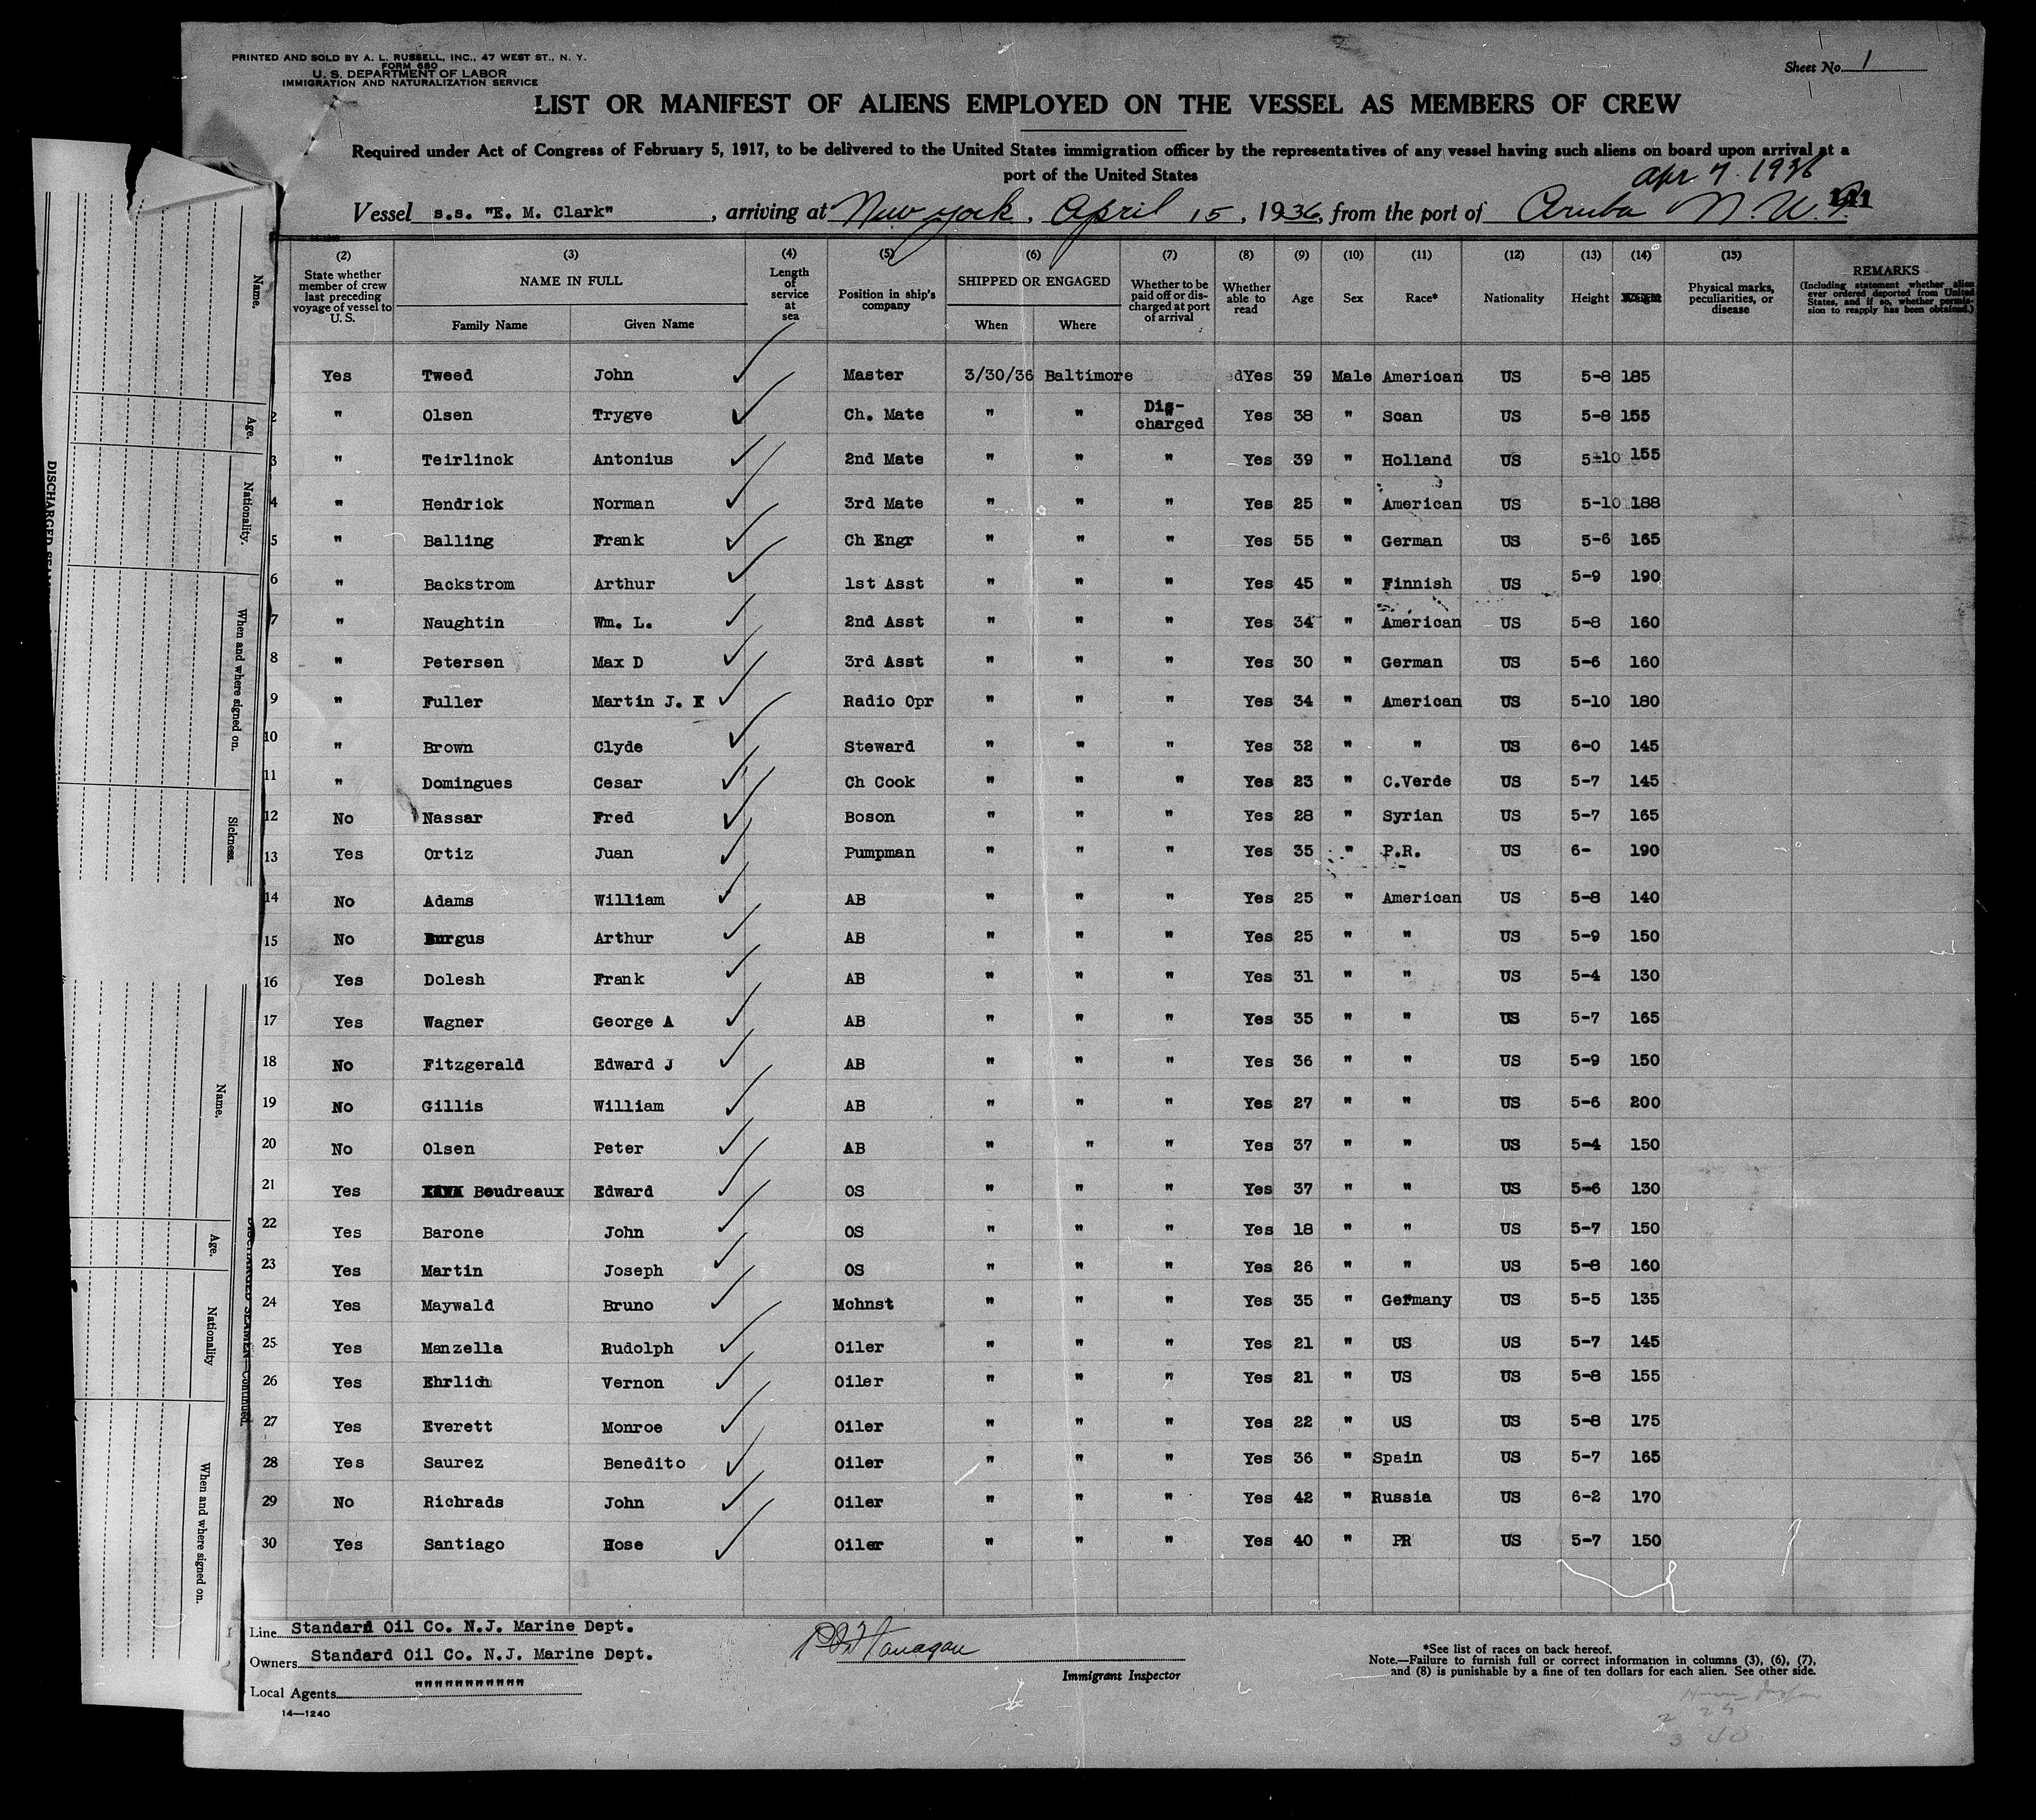 PRINTED AND SOLD BY A. L. RUSSELL, INC., 47 WEST ST., N. Y.
FORM 680
U. S. DEPARTMENT OF LABOR
IMMIGRATION AND NATURALIZATION SERVICE
Sheet No. 1
LIST OR MANIFEST OF ALIENS EMPLOYED ON THE VESSEL AS MEMBERS OF CREW
Required under Act of Congress of February 5, 1917, to be delivered to the United States immigration officer by the representatives of any vessel having such aliens on board upon arrival at a
port of the United States
Apr 7. 1936
Vessel s.s. "E. M. Clark", arriving at New York, April 15, 1936, from the port of Aruba N. W.
(2) (3) (4) (5) (6) (7) (8) (9) (10) (11) (12) (13) (14) (15)
State whether member of crew last preceding voyage of vessel to U. S. NAME IN FULL Family Name Given Name Length of service at sea Position in ship's company SHIPPED OR ENGAGED When Where Whether to be paid off or discharged at port of arrival Whether able to read Age Sex Race* Nationality Height Physical marks, peculiarities, or disease REMARKS (Including statement whether alien ever ordered deported from United States, and if so, whether permission to reapply has been obtained.)
Yes Tweed John Master 3/30/36 Baltimore Yes 39 Male American US 5-8 185
2 " Olsen Trygve Ch. Mate " " Dis-charged Yes 38 " Scan US 5-8 155
3 " Teirlinck Antonius 2nd Mate " " " Yes 39 " Holland US 5-10 155
4 " Hendrick Norman 3rd Mate " " " Yes 25 " American US 5-10 188
5 " Balling Frank Ch Engr " " " Yes 55 " German US 5-6 165
6 " Backstrom Arthur 1st Asst " " " Yes 45 " Finnish US 5-9 190
7 " Naughtin Wm. L. 2nd Asst " " " Yes 34 " American US 5-8 160
8 " Petersen Max D 3rd Asst " " " Yes 30 " German US 5-6 160
9 " Fuller Martin J. Radio Opr " " " Yes 34 " American US 5-10 180
10 " Brown Clyde Steward " " " Yes 32 " " US 6-0 145
11 " Domingues Cesar Ch Cook " " " Yes 23 " C.Verde US 5-7 145
12 No Nassar Fred Boson " " " Yes 28 " Syrian US 5-7 165
13 Yes Ortiz Juan Pumpman " " " Yes 35 " P.R. US 6- 190
14 No Adams William AB " " " Yes 25 " American US 5-8 140
15 No Burgus Arthur AB " " " Yes 25 " " US 5-9 150
16 Yes Dolesh Frank AB " " " Yes 31 " " US 5-4 130
17 Yes Wagner George A AB " " " Yes 35 " " US 5-7 165
18 No Fitzgerald Edward J AB " " " Yes 36 " " US 5-9 150
19 No Gillis William AB " " " Yes 27 " " US 5-6 200
20 No Olsen Peter AB " " " Yes 37 " " US 5-4 150
21 Yes Boudreaux Edward OS " " " Yes 37 " " US 5-6 130
22 Yes Barone John OS " " " Yes 18 " " US 5-7 150
23 Yes Martin Joseph OS " " " Yes 26 " " US 5-8 160
24 Yes Maywald Bruno Mchnst " " " Yes 35 " Germany US 5-5 135
25 Yes Manzella Rudolph Oiler " " " Yes 21 " US US 5-7 145
26 Yes Ehrlich Vernon Oiler " " " Yes 21 " US US 5-8 155
27 Yes Everett Monroe Oiler " " " Yes 22 " US US 5-8 175
28 Yes Saurez Benedito Oiler " " " Yes 36 " Spain US 5-7 165
29 No Richrads John Oiler " " " Yes 42 " Russia US 6-2 170
30 Yes Santiago Hose Oiler " " " Yes 40 " PR US 5-7 150
Line Standard Oil Co. N.J. Marine Dept.
Owners Standard Oil Co. N.J. Marine Dept.
Local Agents """""""""""
14—1240
Immigrant Inspector
*See list of races on back hereof.
Note.—Failure to furnish full or correct information in columns (3), (6), (7),
and (8) is punishable by a fine of ten dollars for each alien. See other side.
Name.
Age.
Nationality.
When and where signed on.
Sickness.
Name.
Age.
Nationality
When and where signed on.
DISCHARGED SEAMEN—Continued.